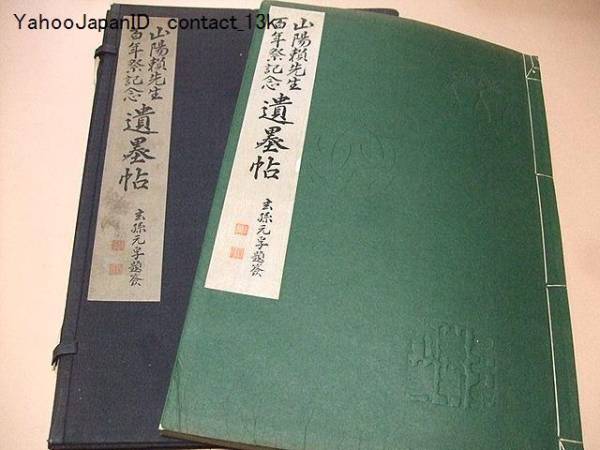 YahooJapanID　contact_13k
山陽頼先生
百年祭記念
遺墨帖
玄孫元孚題签
山陽頼先生
百年祭記念
遺墨帖
玄孫元孚題签